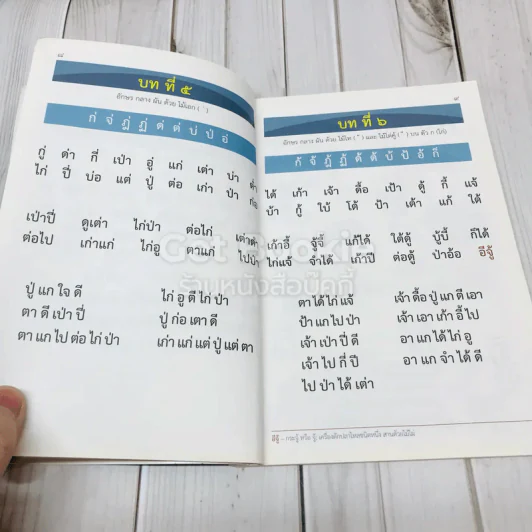 ๘
บท ที่ ๕
อักษร กลาง ผัน ด้วย ไม้เอก ( ่ )
ก่ จ่ ฎ่ ฏ่ ด่ ต่ บ่ ป่ อ่
กู่ ด่า กี่ เป่า อู่ แก่ เต่า บ่า
ไก่ ปี่ บ่อ แต่ ปู่ ต่อ เก่า ป่า
เป่าปี่ ดูเต่า ไก่ป่า ต่อไก่
ต่อไป เก่าแก่ ไก่อู ตาแก่ ไปป่า
ปู่ แก ใจ ดี
ไก่ อู ตี ไก่ ป่า
ตา ตี เป่า ปี่
ปู่ ก่อ เตา ดี
ตา แก ไป ต่อ ไก่ ป่า
เก่า แก่ แต่ ปู่ แต่ ตา
๙
บท ที่ ๖
อักษร กลาง ผัน ด้วย ไม้โท ( ้ ) และ ไม้ไต่คู้ ( ็ ) บน ตัว ก (ก็)
ก้ จ้ ฎ้ ฏ้ ด้ ต้ บ้ ป้ อ้ ก็
ได้ เก้า เจ้า ดื้อ เป้า ตู้ กี้ แจ้
บ้า กู้ ใบ้ โต้ ป้า เต้า แก้ ใต้
เก้าอี้ จู้จี้ แก้ได้ ใต้ตู้ บู้บี้ ก็ได้
ไก่แจ้ จำได้ เก้าปี ต่อตู้ ป่าอ้อ อีจู้
ตา ได้ ไก่ แจ้
เจ้า ดื้อ ปู่ แก ตี เอา
ป้า แก ไป ป่า
เจ้า เอา เก้า อี้ ไป
เจ้า เป่า ปี่ ดี
อา แก ได้ ไก่ อู
เจ้า ไป กี่ ปี
อา แก จำ ได้ ดี
ไป ป่า ได้ เต่า
อีจู้ – กระจู้ หรือ จู้; เครื่องดักปลาไหลชนิดหนึ่ง สานด้วยไม้ไผ่
Got Bookie
ร้านหนังสือบุ๊คกี้